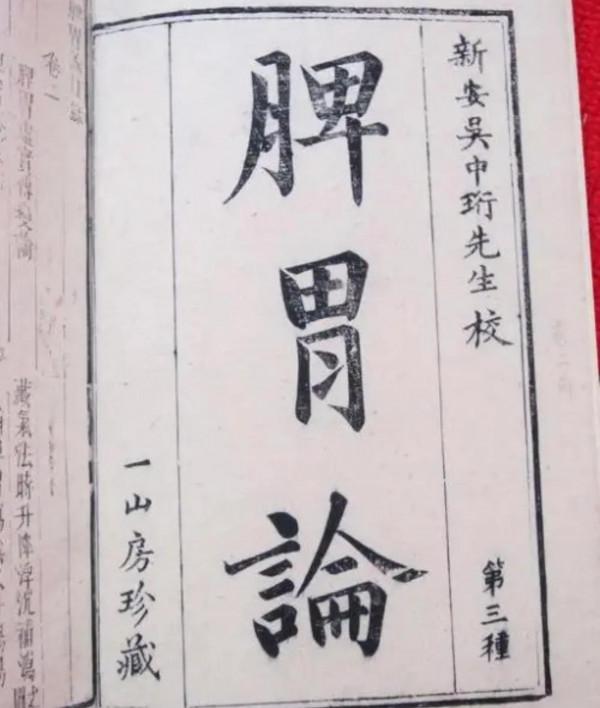 新安吳中珩先生校
第三種
脾胃論
一山房珍藏
脾胃虛實傳變論
藏氣法時升降浮沉補瀉